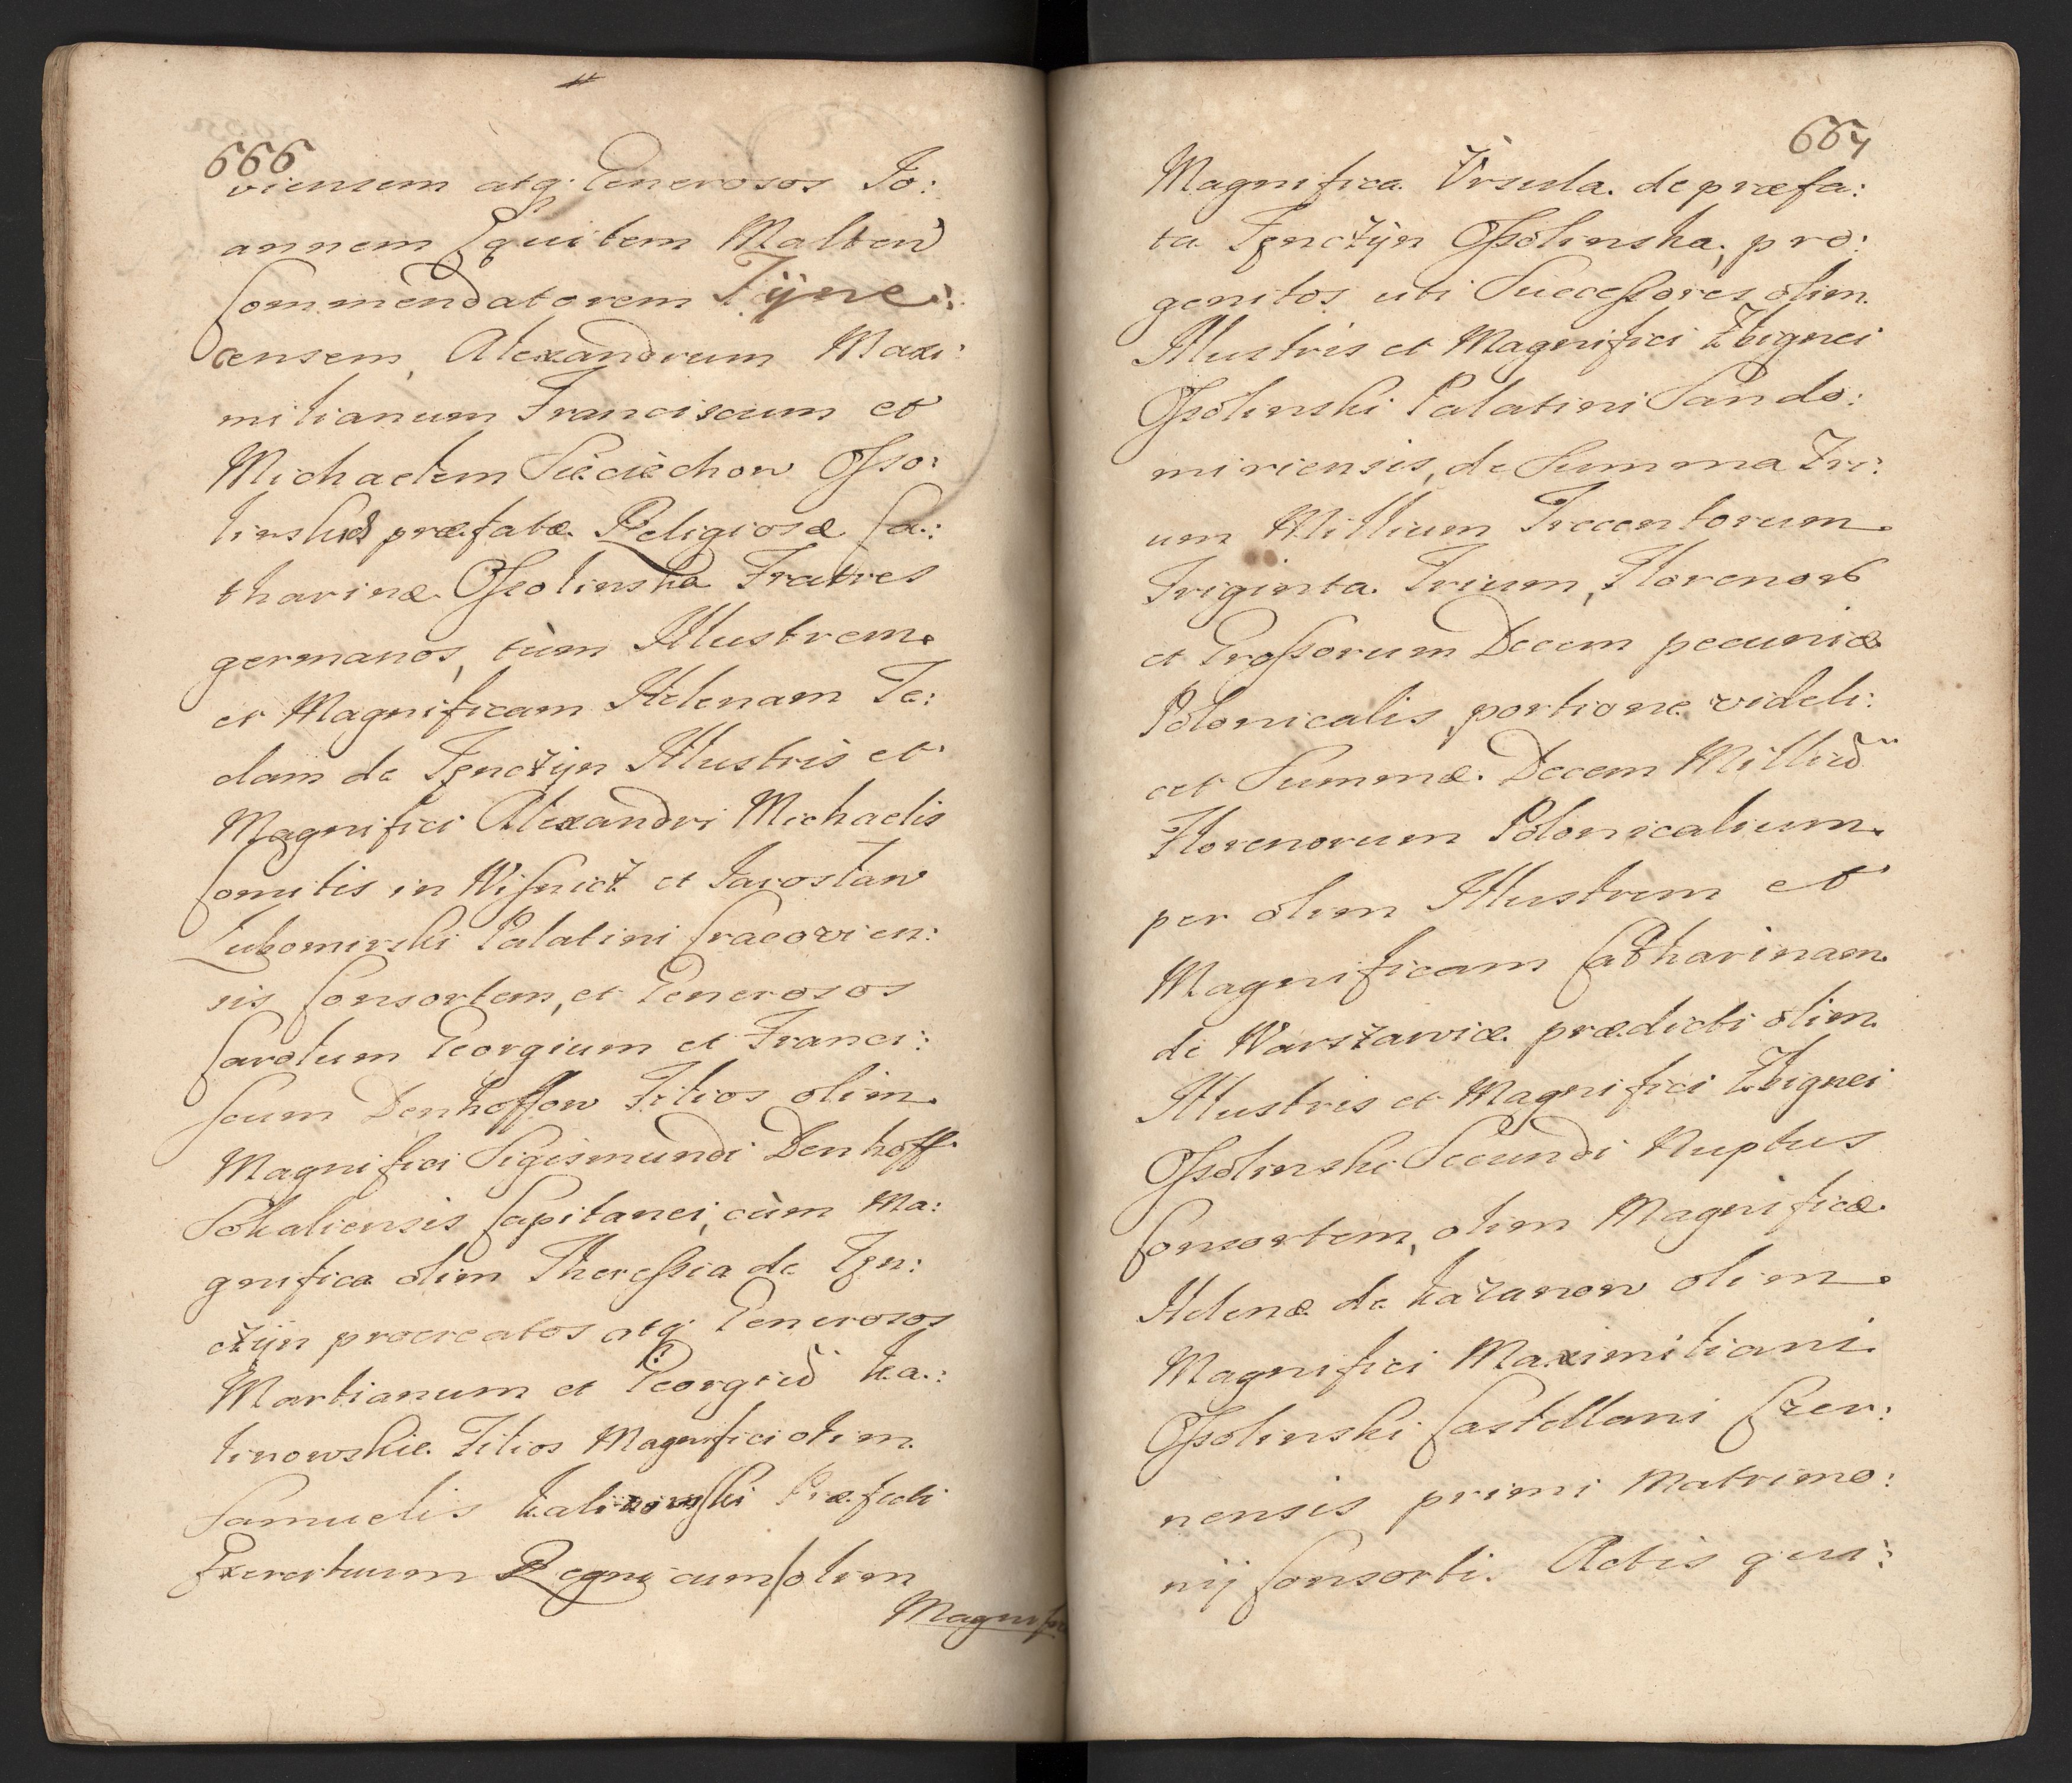 666
viensem atq. Generosos Jo:
annem Equitem Malten
Commendatorem Tÿne:
censem, Alexandrum Maxi:
milianum Franciscum et
Michaelem Sieciechow Osso:
linskies præfatæ Religiosæ Ca:
tharinæ Ossolinska Fratres
germanos, tùm Illustrem
et Magnificam Helenam Te:
clam de Tęnczÿn Illustris et
Magnifici Alexandri Michaelis
Comitis in Wisnicz et Jarosław
Lubomirski Palatini Cracovien:
sis Consortem, et Generosos
Carolum Georgium et Franci:
scum Denhoffow Filios olim
Magnifici Sigismundi Denhoff
Sokaliensis Capitanei, cùm Ma:
gnifica olim Theressia de Tęn:
czÿn procreatos atq. Generosos
Martianum et Georgiũ Ka:
linowskie Filios Magnifici olim
Samuelis Kalinowski Præfecti
Exercituum Regni cum olim
Magnifica
667
Magnifica Vrsula de præfa:
ta Tęnczÿn Ossolinska, pro:
genitos uti Successores olim
Illustris et Magnifici Zbignei
Ossolinski Palatini Sando:
miriensis, de Summa Tri:
um Millium Trecentorum
Triginta Trium, Florenor
et Grossorum Decem pecuniæ
Polonicalis, portione videli:
cet Summæ Decem Milliũ
Florenorum Polonicalium
per olim Illustrem et
Magnificam Catharinam
de Warszawice prædicti olim
Illustris et Magnifici Zbignei
Ossolinski Secundi Nuptus
Consortem, olim Magnificæ
Helenæ de Kazanow olim
Magnifici Maximiliani
Ossolinski Castellani Czer:
nensis primi Matrimo:
nij Consorti. Actis quî: